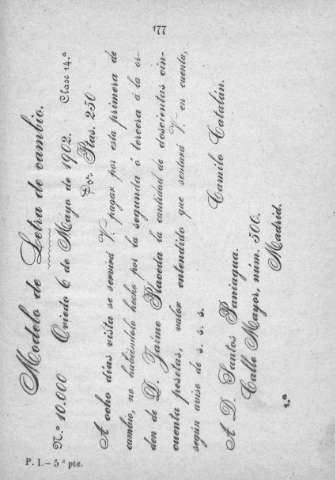 177
Modelo de Letra de cambio.
N.º 10.000 Oviedo 6 de Mayo de 1902. Clase 14.ª
Por Ptas. 250
A ocho días vista se servirá V. pagar por esta primera de
cambio, no habiéndolo hecho por la segunda ó tercera á la or-
den de D. Jaime Placeda la cantidad de doscientas cin-
cuenta pesetas, valor entendido que sentará V. en cuenta,
según aviso de s. s. s.
Camilo Catalán.
A D. Santos Paniagua.
Calle Mayor, núm. 500.
Madrid.
1.ª
P. I.—5ª pte.